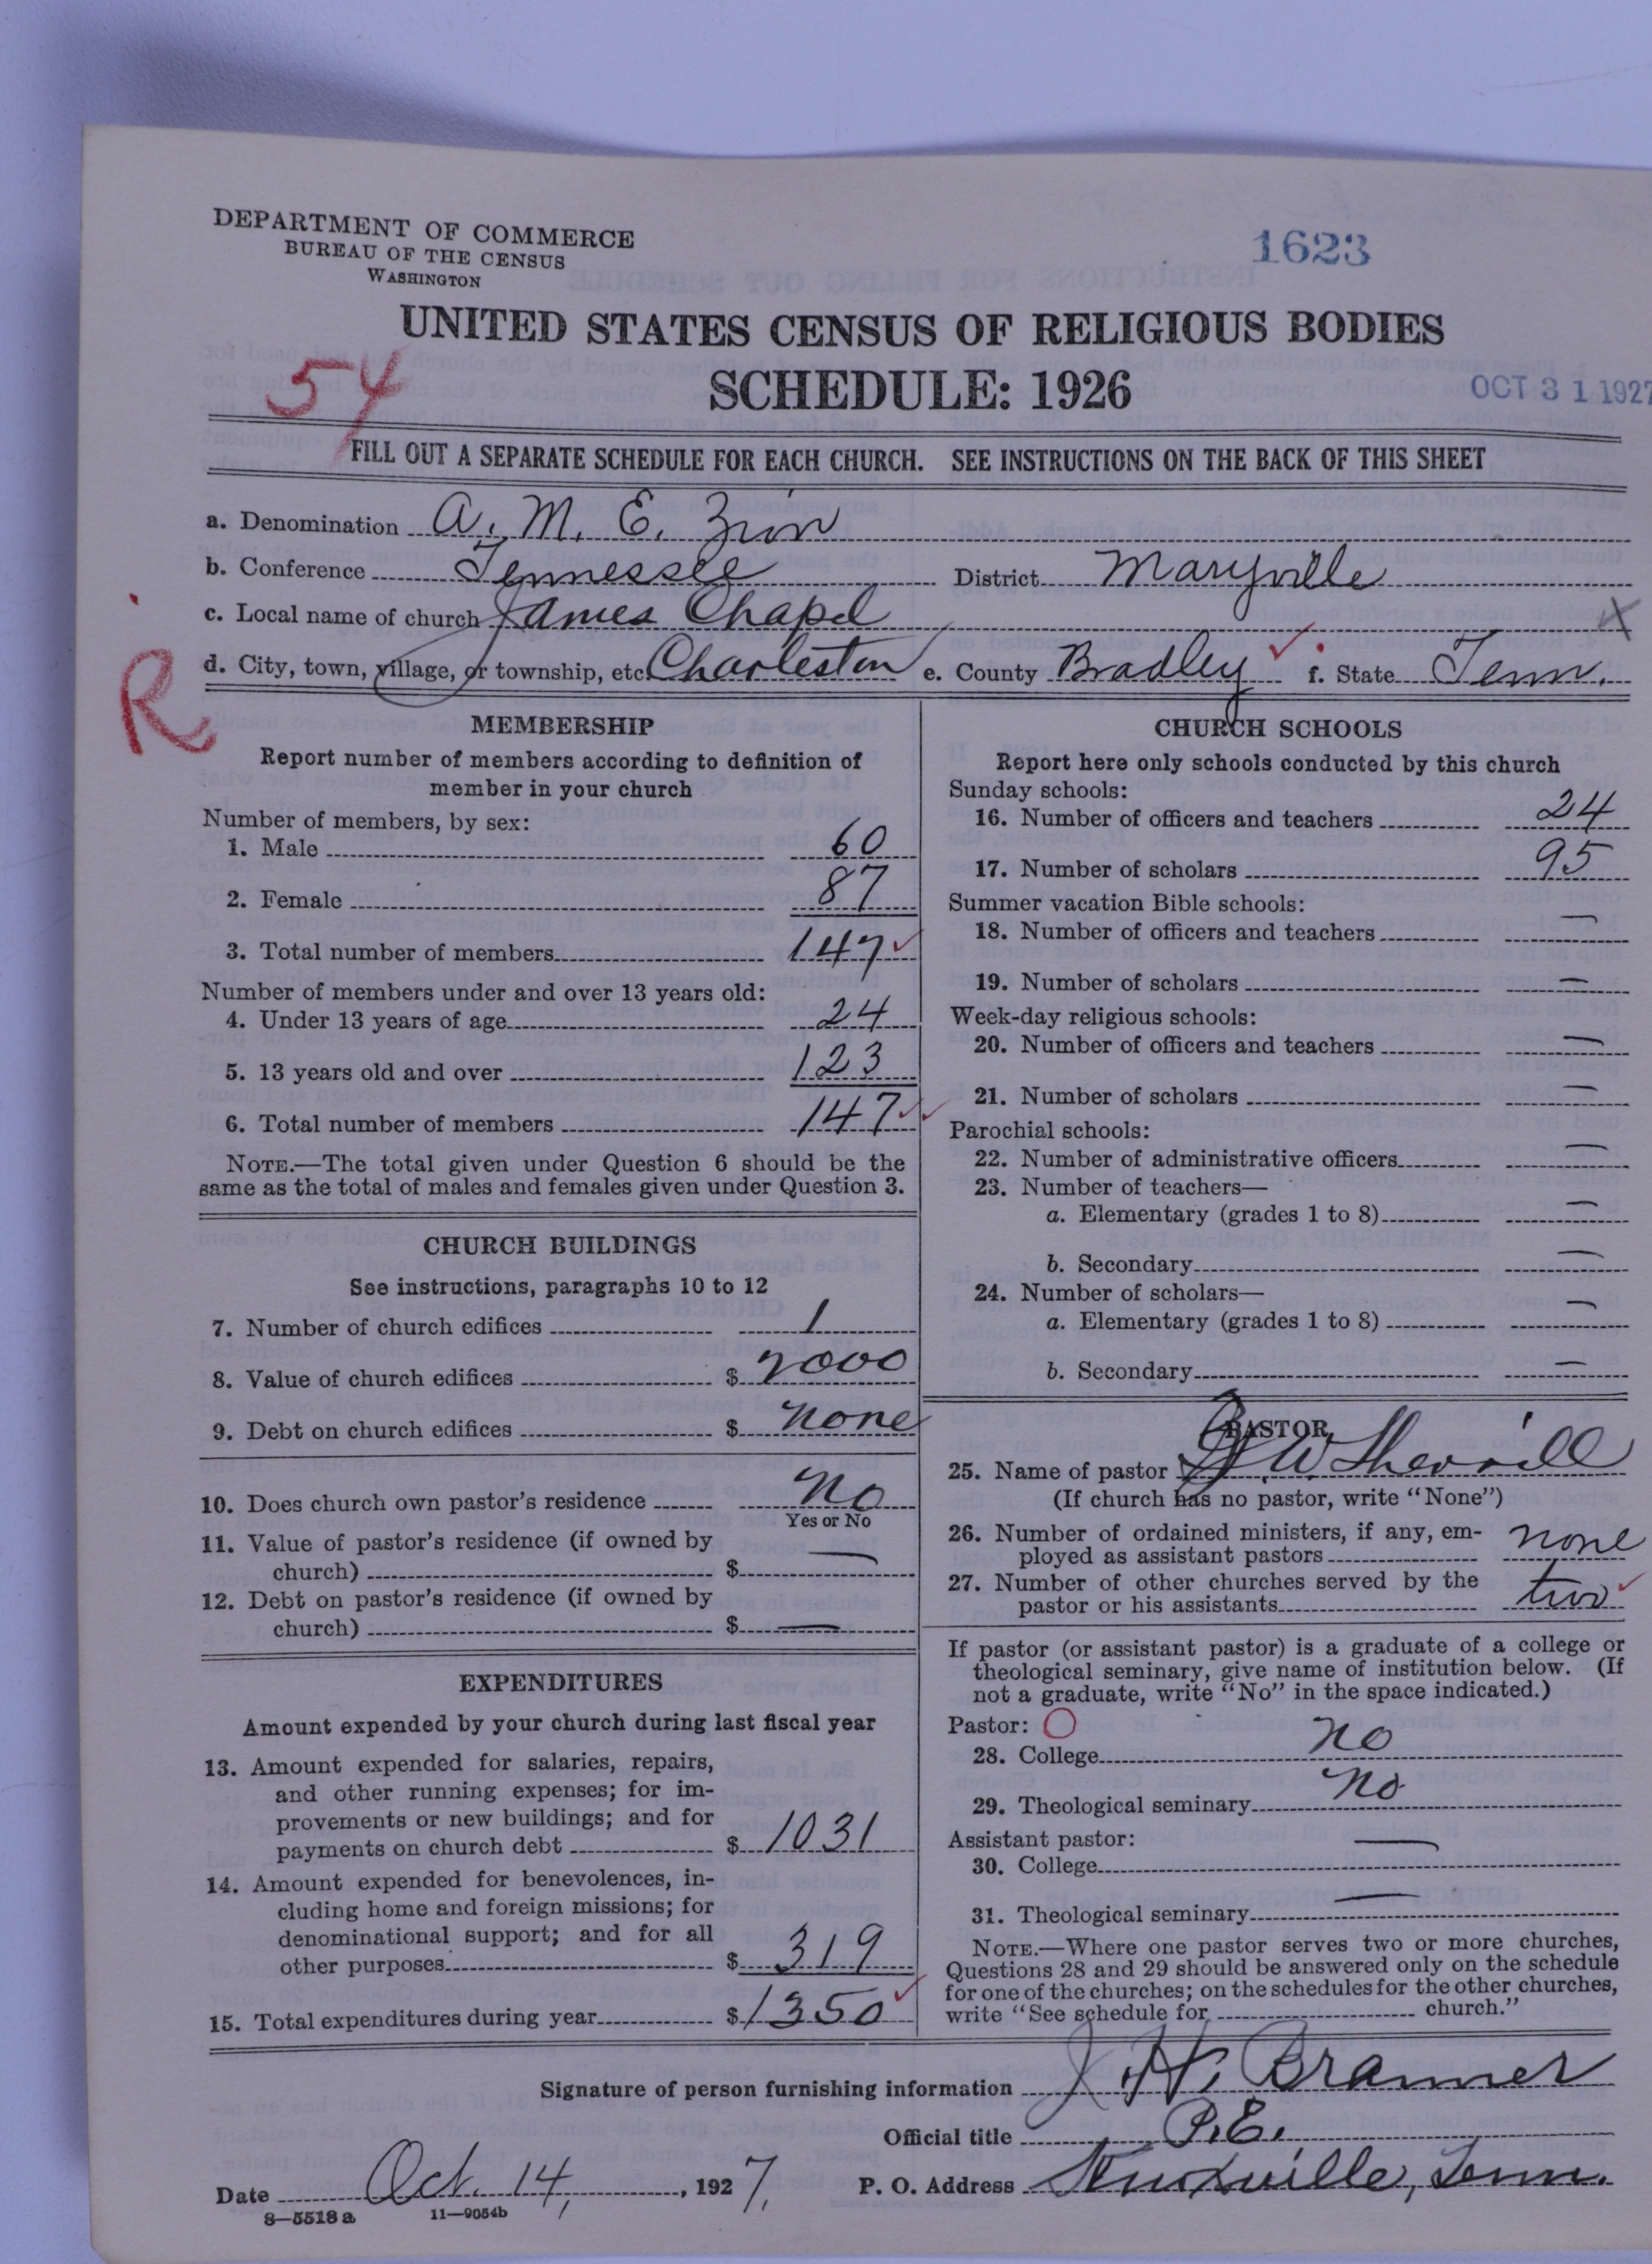 DEPARTMENT OF COMMERCE
BUREAU OF THE CENSUS
WASHINGTON
1623
UNITED STATES CENSUS OF RELIGIOUS BODIES
SCHEDULE: 1926
54
OCT 31 1927
FILL OUT A SEPARATE SCHEDULE FOR EACH CHURCH. SEE INSTRUCTIONS ON THE BACK OF THIS SHEET
a. Denomination A. M. E. Zion
b. Conference Tennessee District Maryville
c. Local name of church James Chapel
X
R
d. City, town, village, or township, etc. Charleston e. County Bradley f. State Tenn.
MEMBERSHIP
Report number of members according to definition of
member in your church
Number of members, by sex:
1. Male 60
2. Female 87
3. Total number of members 147
Number of members under and over 13 years old:
4. Under 13 years of age 24
5. 13 years old and over 123
6. Total number of members 147
NOTE.—The total given under Question 6 should be the
same as the total of males and females given under Question 3.
CHURCH BUILDINGS
See instructions, paragraphs 10 to 12
7. Number of church edifices 1
8. Value of church edifices $ 2000
9. Debt on church edifices $ none
10. Does church own pastor's residence No
Yes or No
11. Value of pastor's residence (if owned by
church) $ —
12. Debt on pastor's residence (if owned by
church) $ —
EXPENDITURES
Amount expended by your church during last fiscal year
13. Amount expended for salaries, repairs,
and other running expenses; for im-
provements or new buildings; and for
payments on church debt $ 1031
14. Amount expended for benevolences, in-
cluding home and foreign missions; for
denominational support; and for all
other purposes $ 319
15. Total expenditures during year $ 1350
CHURCH SCHOOLS
Report here only schools conducted by this church
Sunday schools:
16. Number of officers and teachers 24
17. Number of scholars 95
Summer vacation Bible schools:
18. Number of officers and teachers —
19. Number of scholars —
Week-day religious schools:
20. Number of officers and teachers —
21. Number of scholars —
Parochial schools:
22. Number of administrative officers —
23. Number of teachers—
a. Elementary (grades 1 to 8) —
b. Secondary —
24. Number of scholars—
a. Elementary (grades 1 to 8) —
b. Secondary —
PASTOR
25. Name of pastor W. Sherrill
(If church has no pastor, write "None")
26. Number of ordained ministers, if any, em-
ployed as assistant pastors none
27. Number of other churches served by the
pastor or his assistants two
If pastor (or assistant pastor) is a graduate of a college or
theological seminary, give name of institution below. (If
not a graduate, write "No" in the space indicated.)
Pastor: O
28. College no
29. Theological seminary no
Assistant pastor:
30. College —
31. Theological seminary —
NOTE.—Where one pastor serves two or more churches,
Questions 28 and 29 should be answered only on the schedule
for one of the churches; on the schedules for the other churches,
write "See schedule for church."
Signature of person furnishing information J. H. Bramer
Official title P.E.
Date Oct. 14, 1927. P. O. Address Knoxville, Tenn.
8—5518a 11—9054b